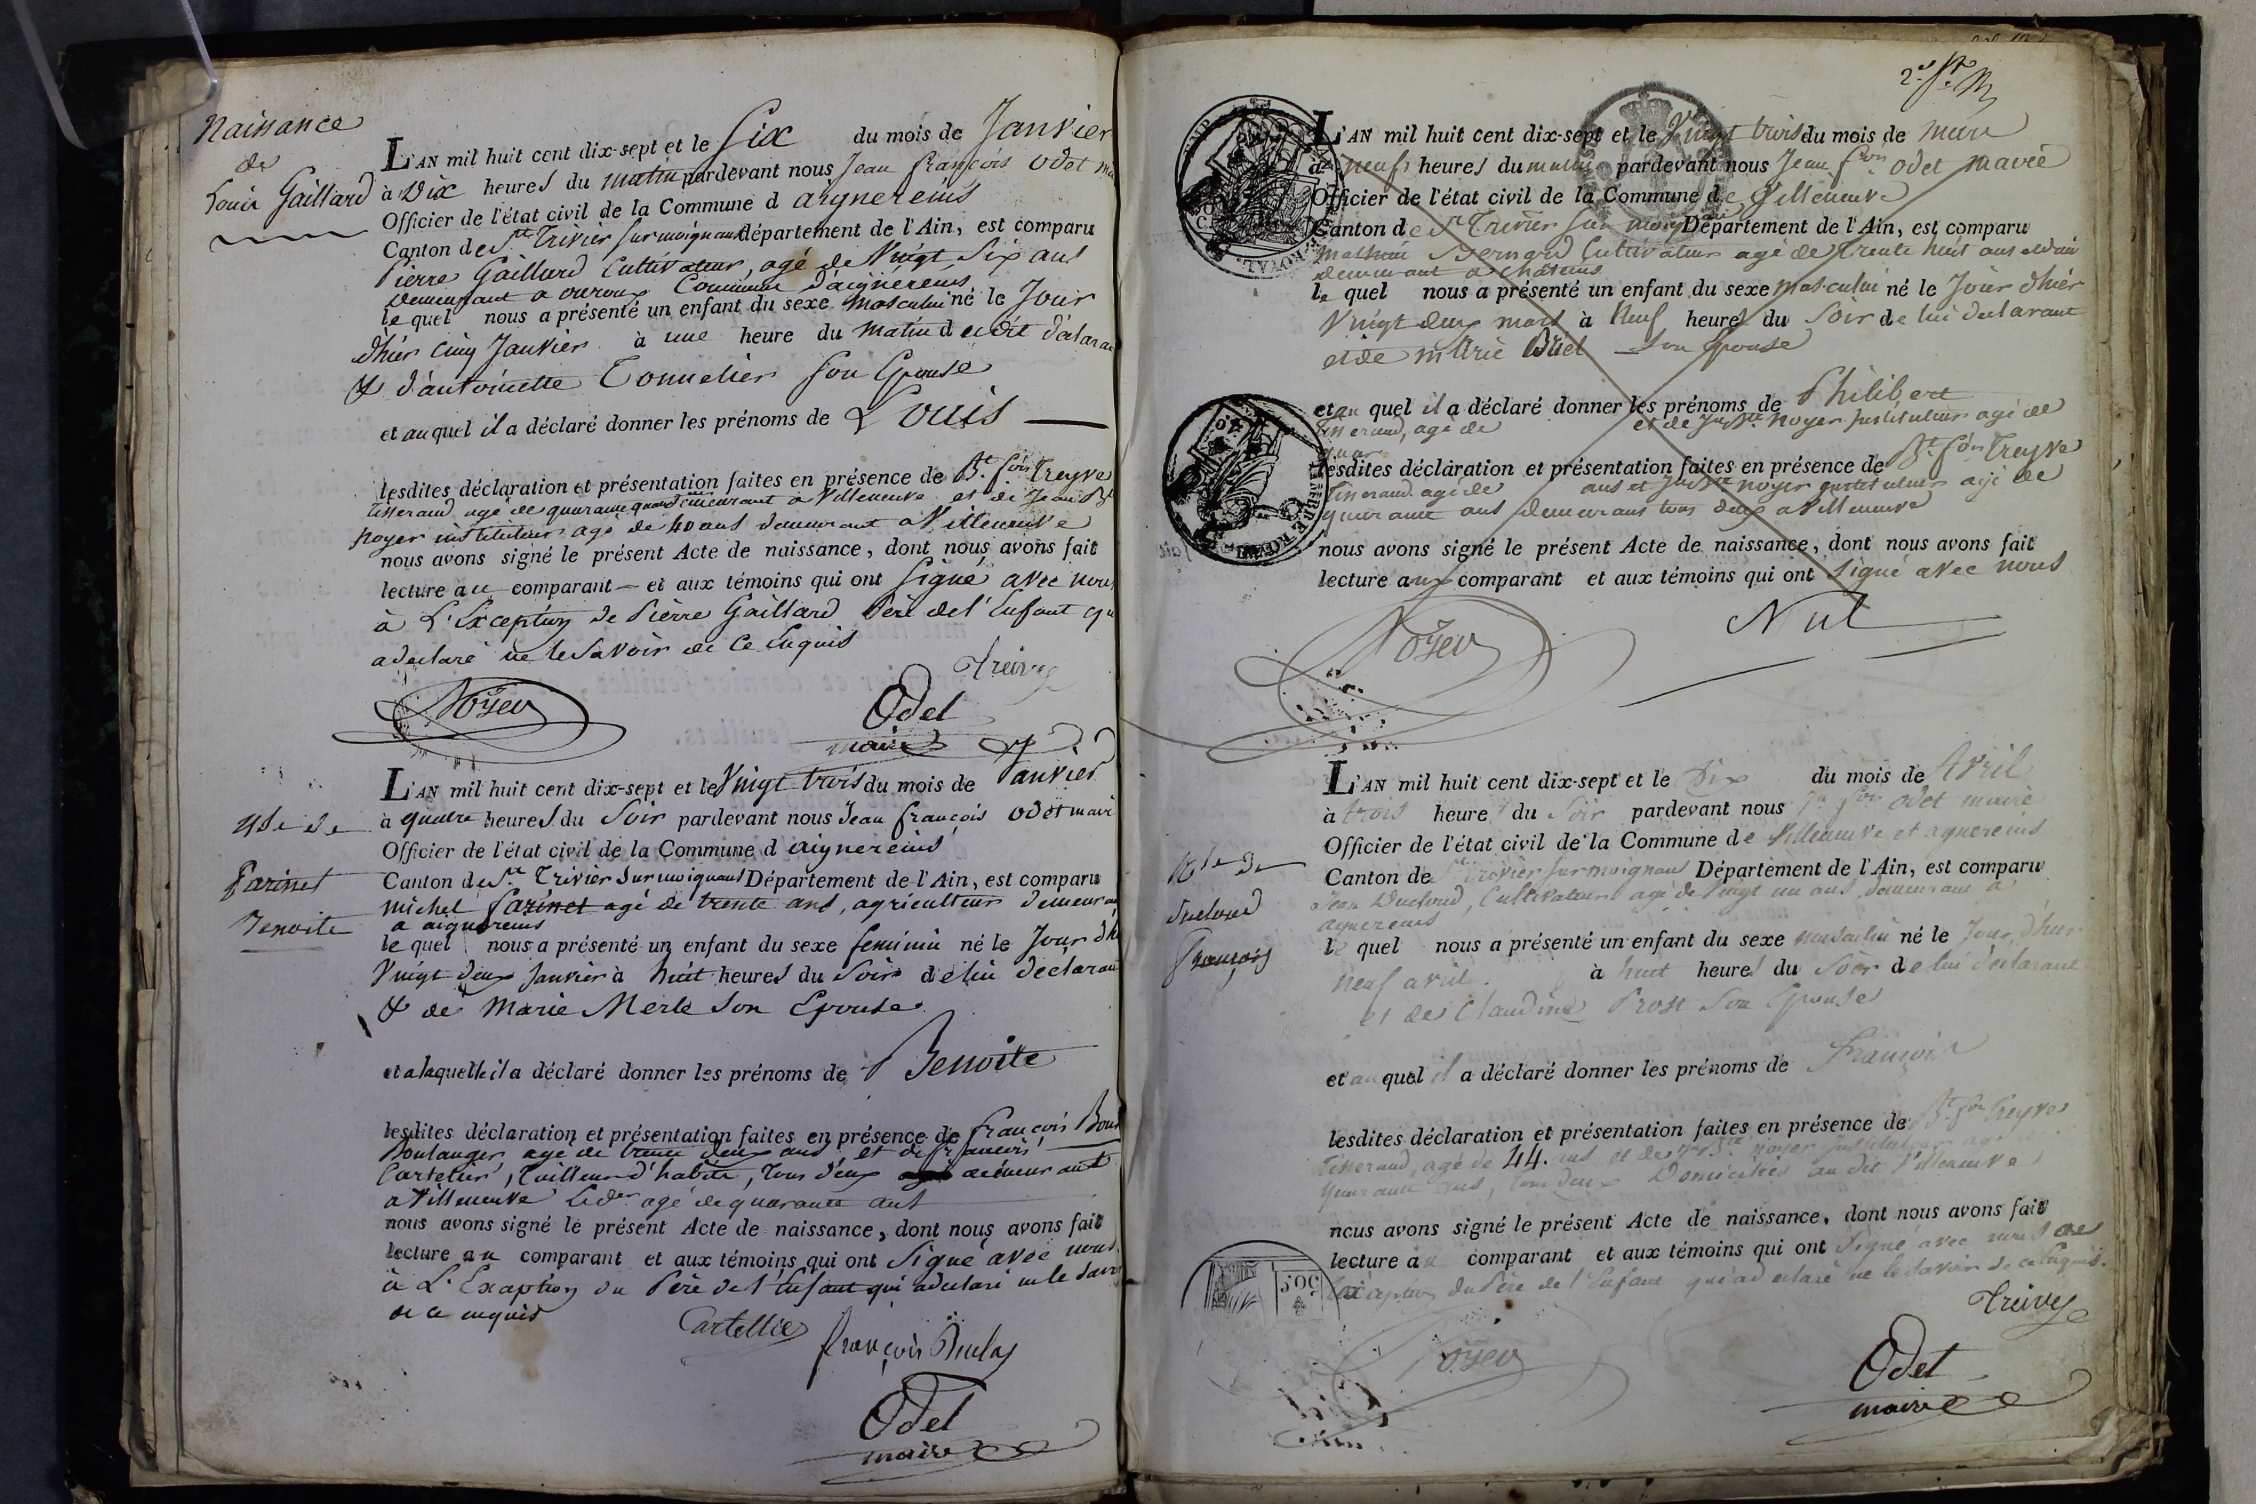 Naissance
de
Louis Gaillard
L'AN mil huit cent dix-sept et le Six du mois de Janvier
à Dix heures du matin pardevant nous Jean françois odet
Officier de l'état civil de la Commune d aignereins
Canton de St Trivier sur moignans département de l'Ain, est comparu
Pierre Gaillard Cultivateur, agé de Vingt Six ans
demeurant a ouroux Commune d'aignereins
le quel nous a présenté un enfant du sexe masculin né le Jour
d'hier cinq Janvier à une heure du matin de dit
& d'antoinette Tonnelier son Epouse
et au quel il a déclaré donner les prénoms de Louis
lesdites déclaration et présentation faites en présence de Bt. fçois Treyve
tisserand agé de quarante quatre demeurant a Villeneuve et de Jean Bt
Noyer instituteur agé de 40 ans demeurant a Villeneuve
nous avons signé le présent Acte de naissance, dont nous avons fait
lecture au comparant et aux témoins qui ont signé avec nous
à L'Exception de Pierre Gaillard Père de l'Enfant
a declaré ne le Savoir de ce Enquis
Treive
Noyer
Odet
maire
Nce de
Farinet
Benoite
L'AN mil huit cent dix-sept et le Vingt trois du mois de Janvier
à quatre heures du Soir pardevant nous Jean françois odet
Officier de l'état civil de la Commune d aignereins
Canton de St. Trivier sur moignans Département de l'Ain, est comparu
Michel farinet agé de trente ans, agriculteur
a aignereins
le quel nous a présenté un enfant du sexe feminin né le Jour
Vingt deux Janvier à huit heures du Soir de lui
& de Marie Merle Son Epouse
et a laquelle il a déclaré donner les prénoms de Benoite
lesdites déclaration et présentation faites en présence de françois
Boulanger agé de trente deux ans, et de françois
Cartelier, Tailleur d'habits, tous deux demeurant
a Villeneuve Le der agé de quarante ans
nous avons signé le présent Acte de naissance, dont nous avons fait
lecture au comparant et aux témoins qui ont Signé avec nous
à L'Exception du Père de l'Enfant qui a declaré ne le
de ce enquis
Cartellier
françois
Odet
maire
2e
L'AN mil huit cent dix-sept et le Vingt trois du mois de mars
à neuf heures du matin pardevant nous Jean fçois odet maire
Officier de l'état civil de la Commune de Villeneuve
Canton de St Trivier sur Département de l'Ain, est comparu
Bernard Cultivateur agé de trente huit ans
demeurant a
le quel nous a présenté un enfant du sexe masculin né le Jour d'hier
Vingt deux mars à Neuf heures du Soir de lui declarant
et de marie son Epouse
et au quel il a déclaré donner les prénoms de Philibert
tisserand, agé de et de Jn Bte. Noyer Instituteur agé de
quar
lesdites déclaration et présentation faites en présence de Bt. fçois Treyve
Tisserand agé de ans et Jn Bte noyer instituteur agé de
quarante ans demeurans tous deux a Villeneuve
nous avons signé le présent Acte de naissance, dont nous avons fait
lecture aux comparant et aux témoins qui ont signé avec nous
Noyer
Nul
Nce de
Ducloud
François
L'AN mil huit cent dix-sept et le Dix du mois de Avril
à trois heures du Soir pardevant nous Jn fçois odet maire
Officier de l'état civil de la Commune de Villeneuve et agnereins
Canton de St Trivier sur moignans Département de l'Ain, est comparu
Jean Ducloud, Cultivateur agé de Vingt un ans, demeurant a
agnereins
le quel nous a présenté un enfant du sexe masculin né le Jour d'hier
neuf avril. à huit heures du Soir de lui declarant
et de Claudine Prost Son Epouse
et au quel il a déclaré donner les prénoms de François
lesdites déclaration et présentation faites en présence de Bt. fçois Treyve
tisserand, agé de 44. ans et de Jn Bte. noyer Instituteur
quarante ans, tous deux Domiciliés au dit Villeneuve
nous avons signé le présent Acte de naissance, dont nous avons fait
lecture au comparant et aux témoins qui ont Signé avec nous
du Père de l'Enfant qui a declaré ne le Savoir de ce Enquis.
Treive
Noyer
Odet
maire